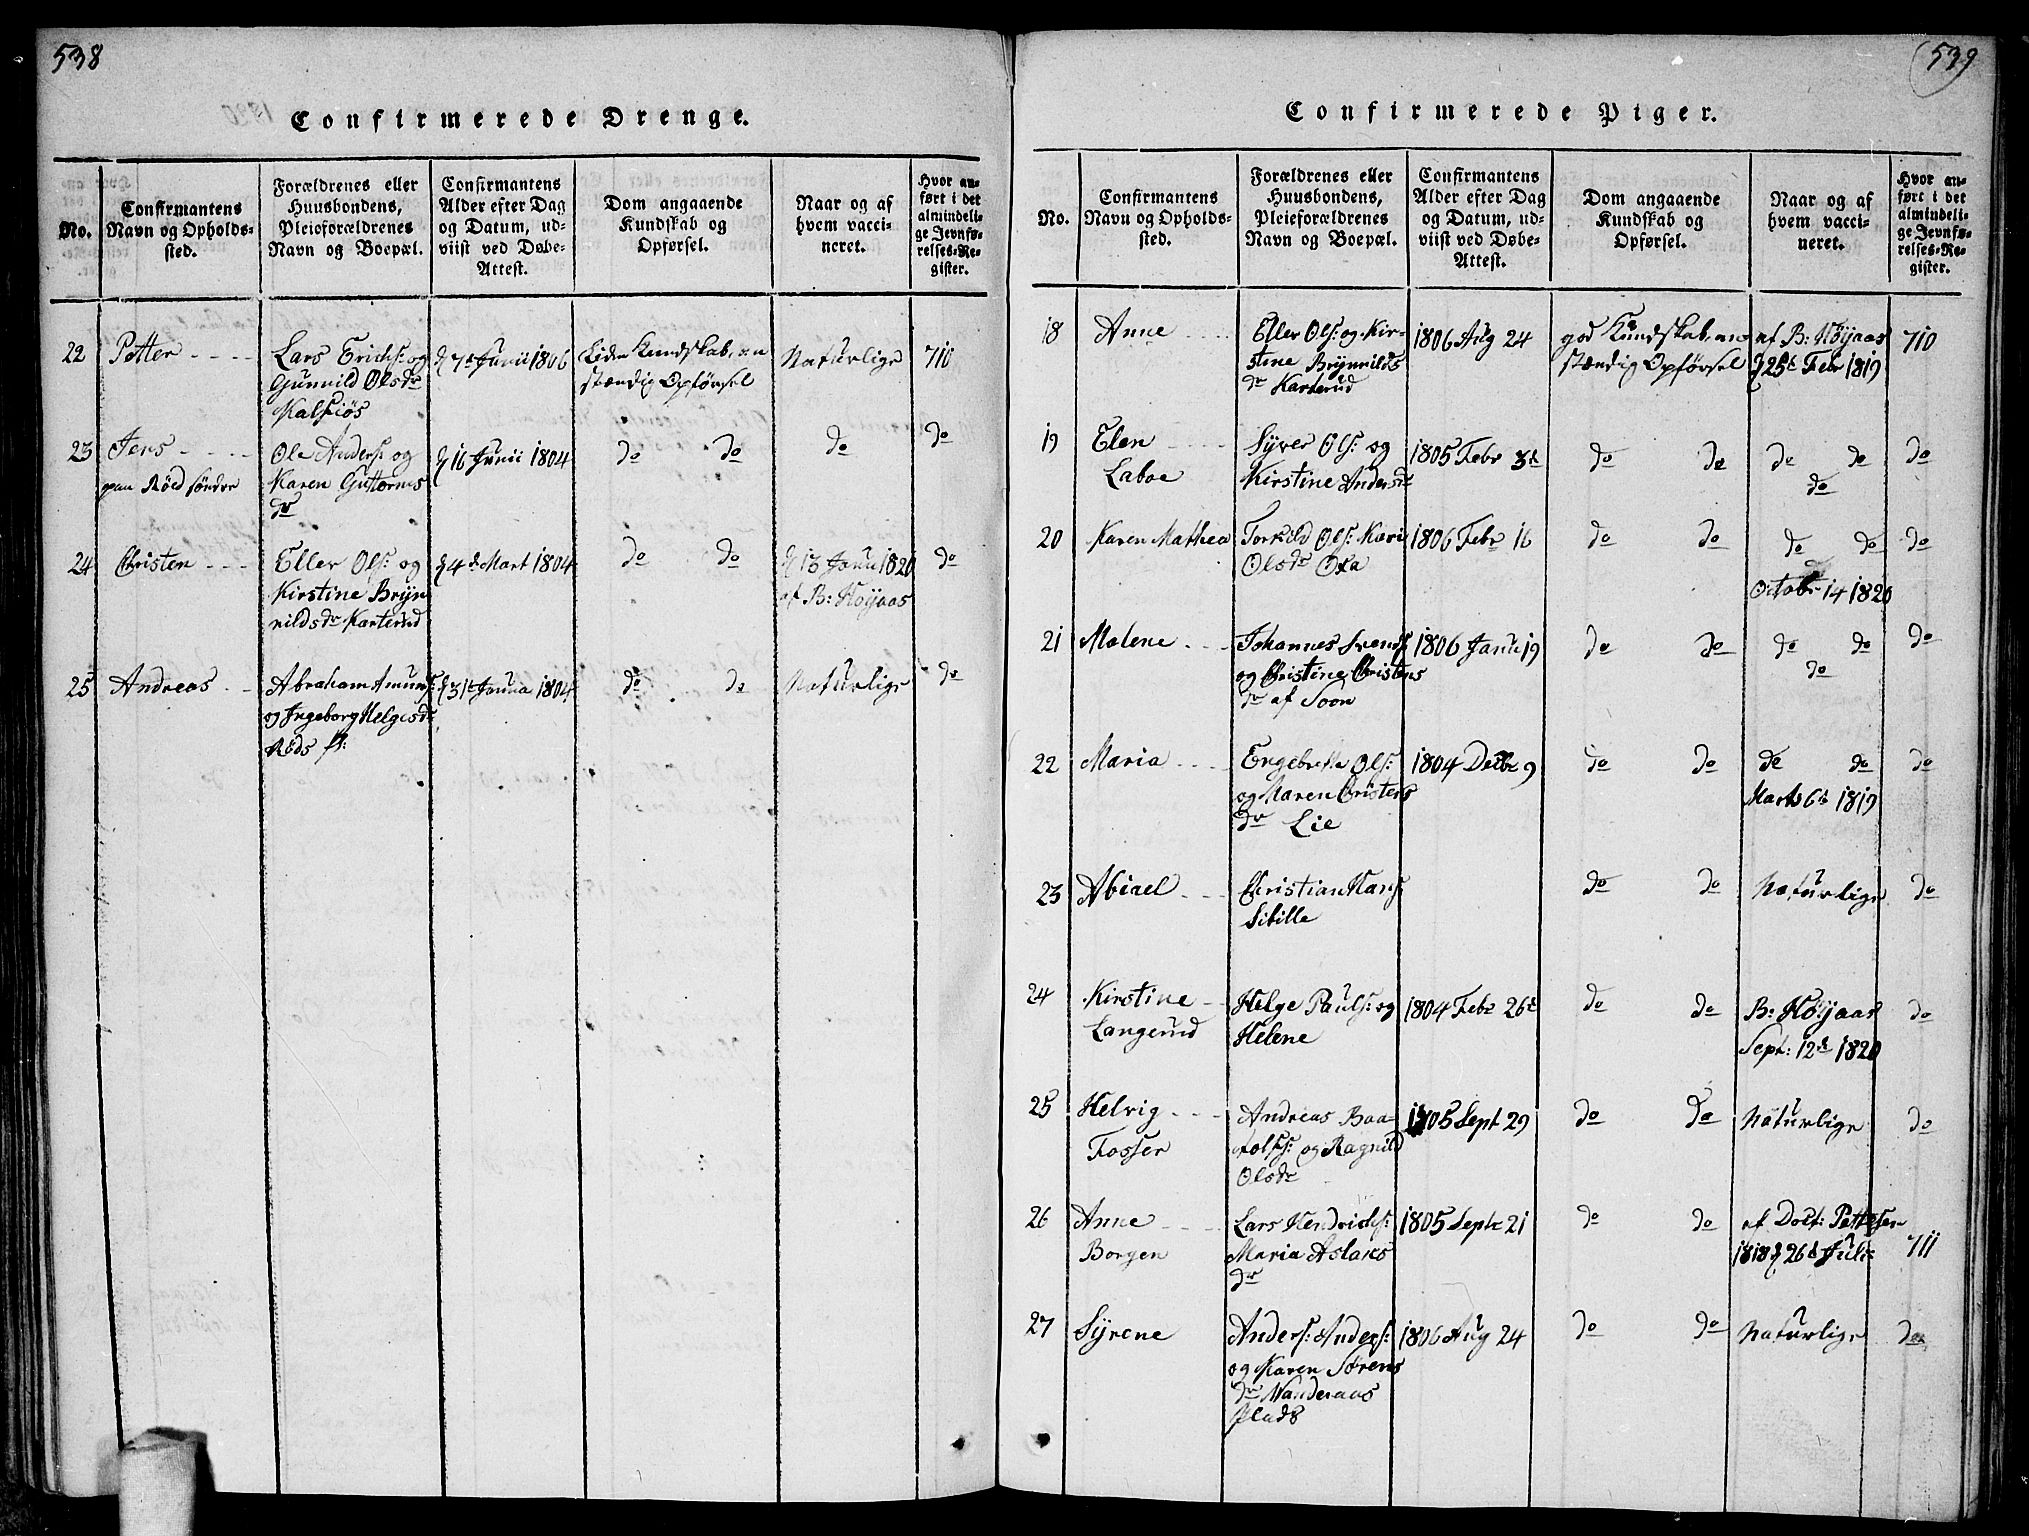 538
Confirmerede Drenge.
No.
Confirmantens
Navn og Opholds-
sted.
Forældrenes eller
Huusbondens,
Pleieforældrenes
Navn og Boepæl.
Confirmantens
Alder efter Dag
og Datum, ud-
viist ved Døbe-
Attest.
Dom angaaende
Kundskab og
Opførsel.
Naar og af
hvem vacci-
neret.
Hvor an-
ført i det
almindeli-
ge Jevnfø-
relses-Re-
gister.
22 Petter Lars Erichs: og d 7de Junii 1806 Liden Kundskab, an Naturlige 710
Gunnild Olsdr stændig Opførsel
Kalsiös
23 Jens Ole Anders: og d 16 Junii 1804 do do do do
paa Röed söndre Karen Guttorms
dr
24 Christen Eller Ols: og d 4de Mart 1804 do do d 13 Janu 1820 do
Kirstine Bryn af B: Höyaas
nildsdr Karterud
25 Andreas Abraham Amunds: d 31te Janua 1804 do do Naturlige do
og Ingeborg Helgesdr
Röds
539
Confirmerede Piger.
No.
Confirmantens
Navn og Opholds-
sted.
Forældrenes eller
Huusbondens,
Pleieforældrenes
Navn og Boepæl.
Confirmantens
Alder efter Dag
og Datum, ud-
viist ved Døbe-
Attest.
Dom angaaende
Kundskab og
Opførsel.
Naar og af
hvem vacci-
neret.
Hvor an-
ført i det
almindeli-
ge Jevnfø-
relses-Re-
gister.
18 Anne Eller Ols: og Kir- 1806 Aug 24 god Kundskab, an af B: Höyaas 710
stine Brynnilds stændig Opførsel d 25de Febr 1819
dr Karterud
19 Elen Syver Ols: og 1805 Febr 3de do do do do do
Laboe Kirstine Andersdr do
20 Karen Mathea Torkild Ols: Kari 1806 Febr 16 do do do do do
Olsdr Oxa
Octobr 14 1820
21 Malene Johannes Svends: 1806 Janu 19 do do do do do
og Christine Christens do
dr af Soon
22 Maria Engebrett Ols: 1804 Decbr 9 do do do do do
og Maren Christens Marts 6te 1819
dr Lie
23 Abiael Christian Hans: do do Naturlige do
Sibille
24 Kirstine Helge Pauls: og 1804 Febr 26de do do B: Höyaas do
Langerud Helene Sept: 12de 1820
25 Helvig Andreas Baa- 1805 Sept 29 do do Naturlige do
Fosser tolfs: og Ragnild
Olsdr
26 Anne Lars Hendrichs: 1805 Septr 21 do do af Doct: Pettersen
Borgen Maria Aslaks 1818 d 26de Juli 711
dr
27 Syrene Anders: Anders: 1806 Aug 24 do do Naturlige do
og Karen Sörens
dr Wanderaas
Plads